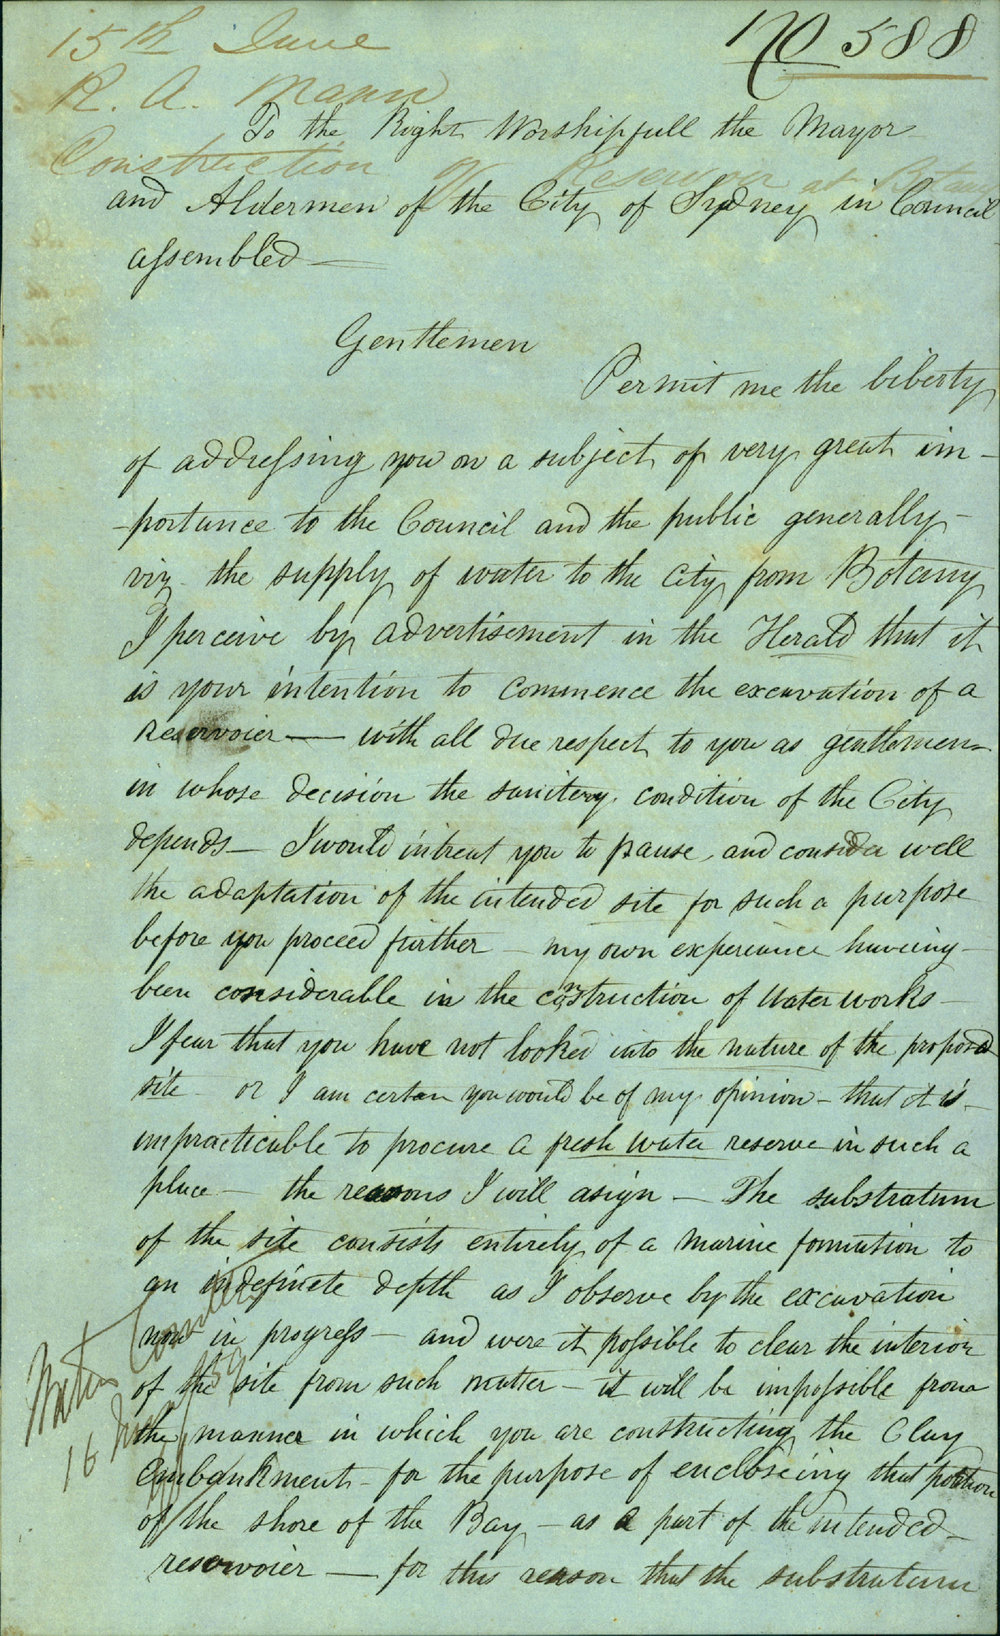 15th June
170 588
R. A. Mann
Construction of Reservoir at Botany
To the Right Worshipfull the Mayor
and Aldermen of the City of Sydney in Council
assembled —
Gentlemen
Permit me the liberty
of addressing you on a subject of very great im-
-portance to the Council and the public generally -
viz. the supply of water to the City from Botany
I perceive by advertisement in the Herald that it
is your intention to commence the excavation of a
Reservoier — with all due respect to you as gentlemen
in whose decision the sanitary condition of the City
depends — I would intreat you to pause, and consider well
the adaptation of the intended site for such a purpose
before you proceed further — my own experiance haveing -
been considerable in the construction of Water works —
I fear that you have not looked into the nature of the proposed
site - or I am certan you would be of my opinion - that it is -
impracticable to procure a fresh water reserve in such a
place — the reasons I will asign — The substratum
of the site consists entirely of a marine formation to
an indefinete depth as I observe by the excavation
now in progress — and were it possible to clear the interior
of the site from such matter — it will be impossible from
the manner in which you are constructing the Clay
Embankment - for the purpose of encloseing that portion
of the shore of the Bay — as a part of the intended —
resovoier — for this reason that the substratum
Water Committee
16 June /59